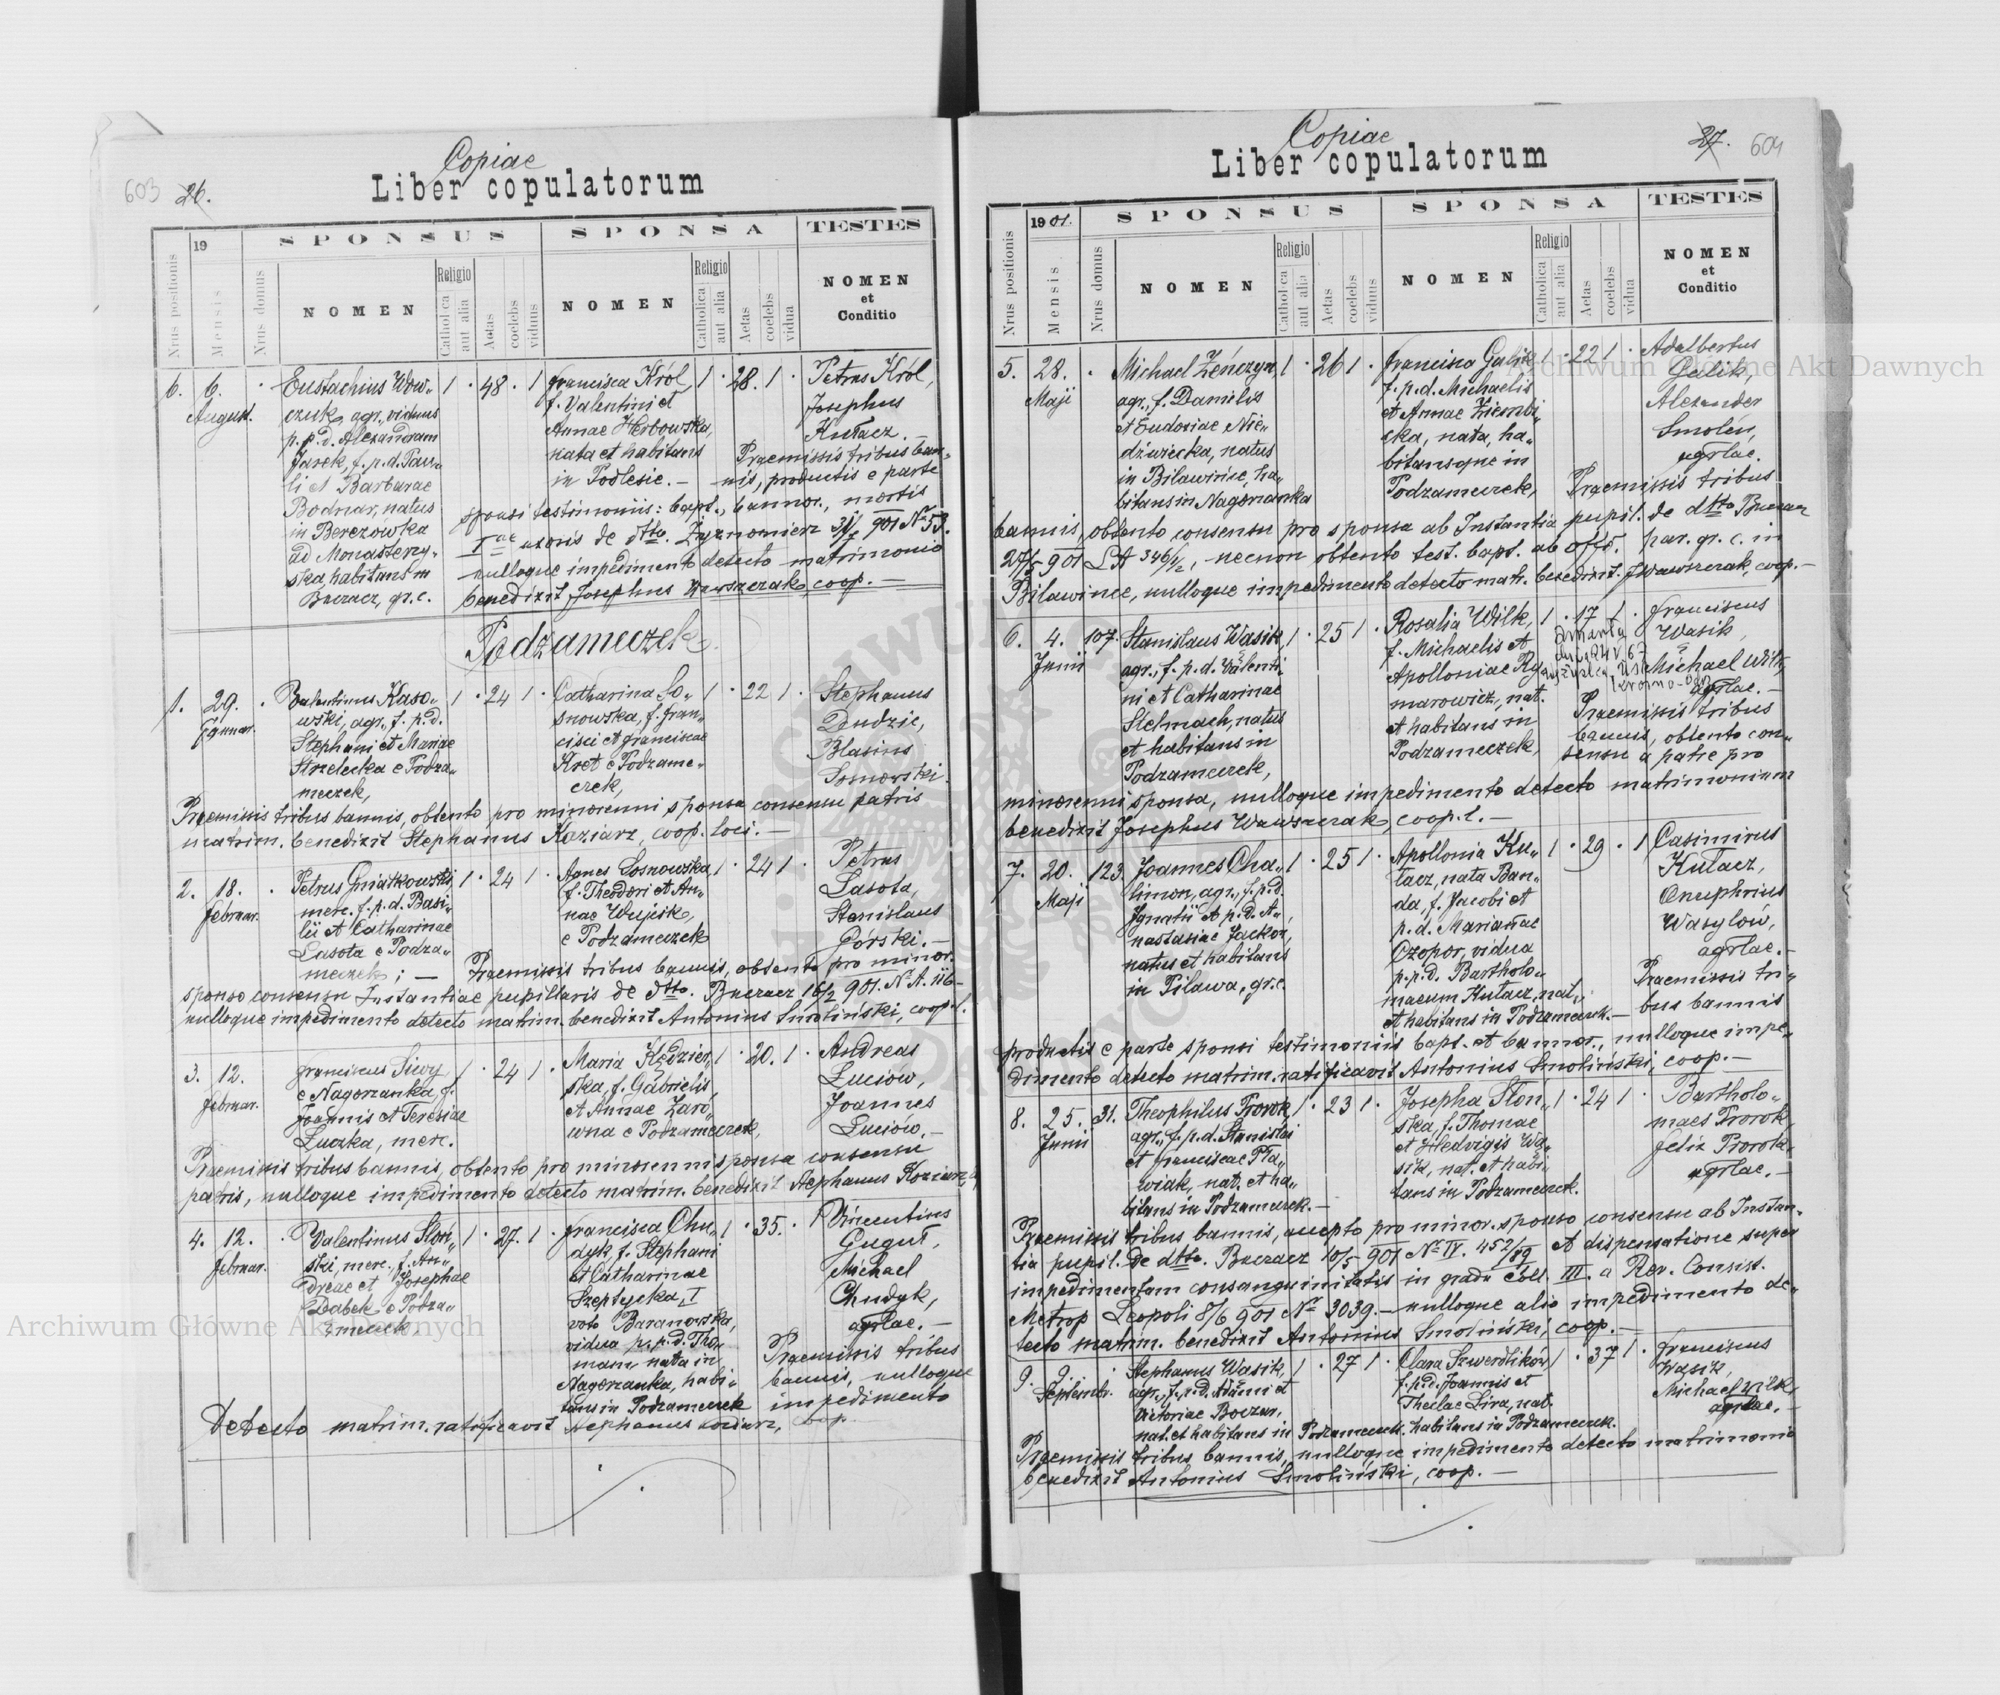 Copiae
603 26.
Liber copulatorum
19
SPONSUS
SPONSA
TESTES
Nrus positionis
Mensis
Nrus domus
NOMEN
Religio
Catholica
aut alia
Aetas
coelebs
viduus
NOMEN
Religio
Catholica
aut alia
Aetas
coelebs
vidua
NOMEN
et
Conditio
6. 6. August. · Eustachius Wow„ 1 · 48 · 1 Francisca Król, 1 · 28. 1 · Petrus Król,
czuk, agr., viduus f. Valentini et Josephus
p. p. d. Alexandram Annae Herbowska, Kułacz. —
Jasek, f. p. d. Pau„ nata et habitans Praemissis tribus ban„
li et Barbarae in Podlesie. — nis, productis e parte
Bodnar, natus sponsi testimoniis: bapt., bannor., mortis
in Berezowka I ae uxoris de dtto. Żyznomierz 31/7 901 № 53.
ad Monasterzy„ nulloque impedimento detecto matrimonio
ska habitans in benedixit Josephus Wawszczak, coop. —
Buczacz, gr. c.
Podzameczek.
1. 29. Januar. · Valentinus Kaso„ 1 · 24 1 · Catharina So„ 1 · 22 1 · Stephanus
wski, agr., f. p. d. snowska, f. Fran„ Dudzic,
Stephani et Mariae cisci et Franciscae Blasius
Strzelecka e Podza„ Kret e Podzame„
meczek, czek,
Praemissis tribus bannis, obtento pro minorenni sponsa consensu patris
matrim. benedixit Stephanus Koziarz, coop. loci. —
2. 18. Februar. · Petrus Gniatkowski, 1 · 24 1 · Agnes Sosnowska, 1 · 24 1 · Petrus
merc. f. p. d. Basi„ f. Theodori et An„ Lasota,
lii et Catharinae nae Wujcik, Stanislaus
Lasota e Podza„ e Podzameczek Górski. —
meczek; — Praemissis tribus bannis, obtento pro minor.
sponso consensu Instantiae pupillaris de dtto. Buczacz 16/2 901. № A. 116 —
nulloque impedimento detecto matrim. benedixit Antonius Smoliński, coop. l.
3. 12. Februar. Franciscus Siwy 1 · 24 1 · Maria Kędzier„ 1 · 20. 1 · Andreas
e Nagorzanka, f. ska, f. Gabrielis Luciów,
Joannis et Teresiae et Annae Zaró„ Joannes
Łuczka, merc. wna e Podzameczek, Luciów. —
Praemissis tribus bannis, obtento pro minorenni sponsa consensu
patris, nulloque impedimento detecto matrim. benedixit Stephanus Koziarz,
4. 12. Februar. · Valentinus Słoń„ 1 · 27. 1 · Francisca Chu„ 1 · 35. · Vincentius
ski, merc., f. An„ dyk, f. Stephani Guguł,
dreae et Josephae et Catharinae Michael
Dabek e Podza„ Szeptycka, I Chudyk,
meczek. voto Baranowska, agrlae. —
vidua p. p. d. Tho„ Praemissis tribus
mam nata in bannis, nulloque
Nagorzanka, habi„ impedimento
tans in Podzameczek
detecto matrim. ratificavit Stephanus Koziarz, coop.
Copiae
27. 604
Liber copulatorum
1901.
SPONSUS
SPONSA
TESTES
Nrus positionis
Mensis
Nrus domus
NOMEN
Religio
Catholica
aut alia
Aetas
coelebs
viduus
NOMEN
Religio
Catholica
aut alia
Aetas
coelebs
vidua
NOMEN
et
Conditio
5. 28. Maji · Michael Żeńczyn, 1 · 26 1 · Francisca Galik, 1 · 22 1 · Adalbertus
agr., f. Danielis f. p. d. Michaelis Galik,
et Eudoxiae Nie„ et Annae Ziembi„ Alexander
dźwiecka, natus cka, nata, ha„ Smolen,
in Bilawińce, ha„ bitansque in agrlae.
bitans in Nagorzanka Podzameczek, Praemissis tribus
bannis, obtento consensu pro sponsa ab Instantia pupil. de dtto Buczacz
27/5 901 LA 346/1/2, necnon obtento test. bapt. ab offo. par. gr. c. in
Bilawince, nulloque impedimento detecto matr. benedixit J Wawszczak, coop. —
6. 4. Junii 107. Stanislaus Wasik, 1 · 25 1 · Rosalia Wilk, 1 · 17 1 · Franciscus
agr., f. p. d. Valenti f. Michaelis et Wasik,
ni et Catharinae Apolloniae Ry„ Michael Wilk,
Stelmach, natus marowicz, nat. agrlae. —
et habitans in et habitans in Praemissis tribus
Podzameczek, Podzameczek, bannis, obtento con„
sensu a patre pro
minorenni sponsa, nulloque impedimento detecto matrimonium
benedixit Josephus Wawszczak, coop. l. —
7. 20. Maji 123. Joannes Cha„ 1 · 25 1 · Apollonia Ku„ 1 · 29 · 1 Casimirus
limon, agr., f. p. d. łacz, nata Ban„ Kułacz,
Ignatii et p. d. A„ da, f. Jacobi et Onuphrius
nastasiae Jackow, p. d. Mariannae Wasylów,
natus et habitans Czopor, vidua agrlae. —
in Pilawa, gr. c. p. p. d. Bartholo„ Praemissis tri„
maeum Kułacz, nat. bus bannis
et habitans in Podzameczek. —
productis e parte sponsi testimoniis bapt. et bannor., nulloque impe„
dimento detecto matrim. ratificavit Antonius Smoliński, coop. —
8. 25. Junii 31. Theophilus Prorok 1 · 23 1 · Josepha Słoń„ 1 · 24 1 · Bartholo„
agr., f. p. d. Stanislai ska, f. Thomae maes Prorok,
et Franciscae Pta„ et Hedvigis Wa„ Felix Prorok
wiak, nat. et ha„ sik, nat. et habi„ agrlae. —
bitans in Podzameczek. — tans in Podzameczek.
Praemissis tribus bannis, accepto pro minor. sponso consensu ab Instan„
tia pupil. de dtto. Buczacz 10/5 901 № IV. 452/99 et dispensatione super
impedimentum consanguinitatis in gradu coll. III. a Rev. Consist.
Metrop Leopoli 8/6 901 № 3039. — nulloque alio impedimento de„
tecto matrim. benedixit Antonius Smoliński, coop. —
9. 9. Septembr. Stephanus Wasik, 1 · 27 1 · Clara Szwerdlików 1 · 37 1 · Franciscus
agr., f. p. d. Adami et f. p. d. Joannis et Wasik,
Victoriae Boczar, Theclae Lira, nat. Michael Wilk,
nat. et habitans in Podzameczek. habitans in Podzameczek. agrlae. —
Praemissis tribus bannis, nulloque impedimento detecto matrimonio
benedixit Antonius Smoliński, coop. —
Archiwum Główne Akt Dawnych
Archiwum Główne Akt Dawnych